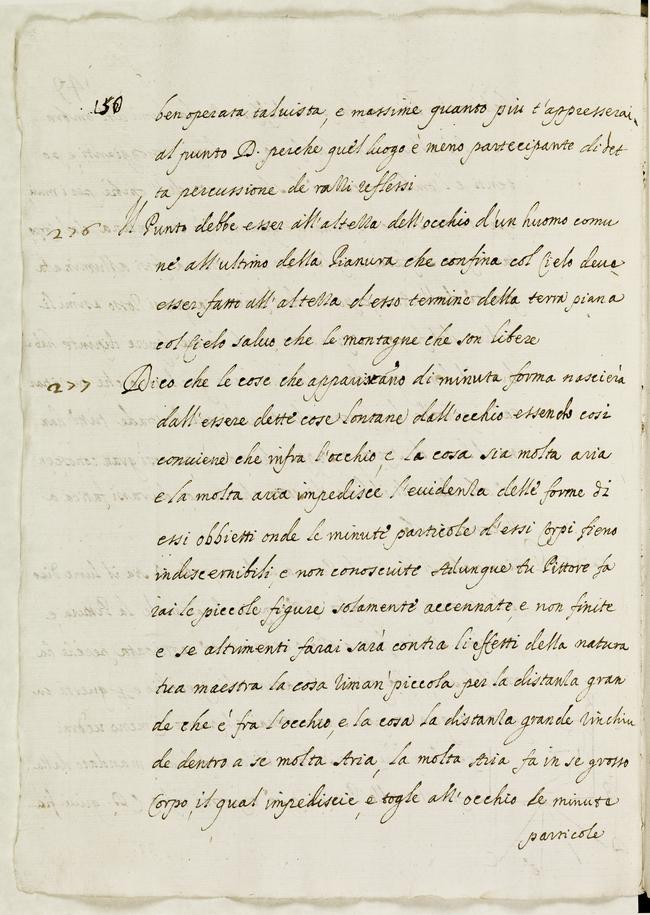 150
ben operata tal vista, e massime quanto piu t'appresserai
al punto D. perche quel luogo è meno partecipante di det
ta percussione de ralli reflessi
276 Il Punto debbe esser all'altella dell'occhio d'un huomo comu
ne all'ultimo della Pianura che confina col Cielo deue
esser fatto all'altella d'esso termine della terra piana
col Cielo saluo che le montagne che son libere
277 Dico che le cose che appariranno di minuta forma nascierà
dall'essere dette cose lontane dall'occhio essendo cosi
conuiene che infra l'occhio, e la cosa sia molta aria
e la molta aria impedisce l'euidenla delle forme di
essi obbietti onde le minute particole d'essi Corpi fieno
indiscernibili, e non conosciute Adunque tu Pittore fa
rai le piccole figure solamente accennate, e non finite
e se altrimenti farai sarà contra li effetti della natura
tua maestra la cosa riman' piccola per la distanla gran
de che è fra l'occhio, e la cosa la distanla grande rinchiu
de dentro a se molta Aria, la molta Aria fa in se grosso
Corpo, il qual' impediscie, e togle all'occhio le minute
particole